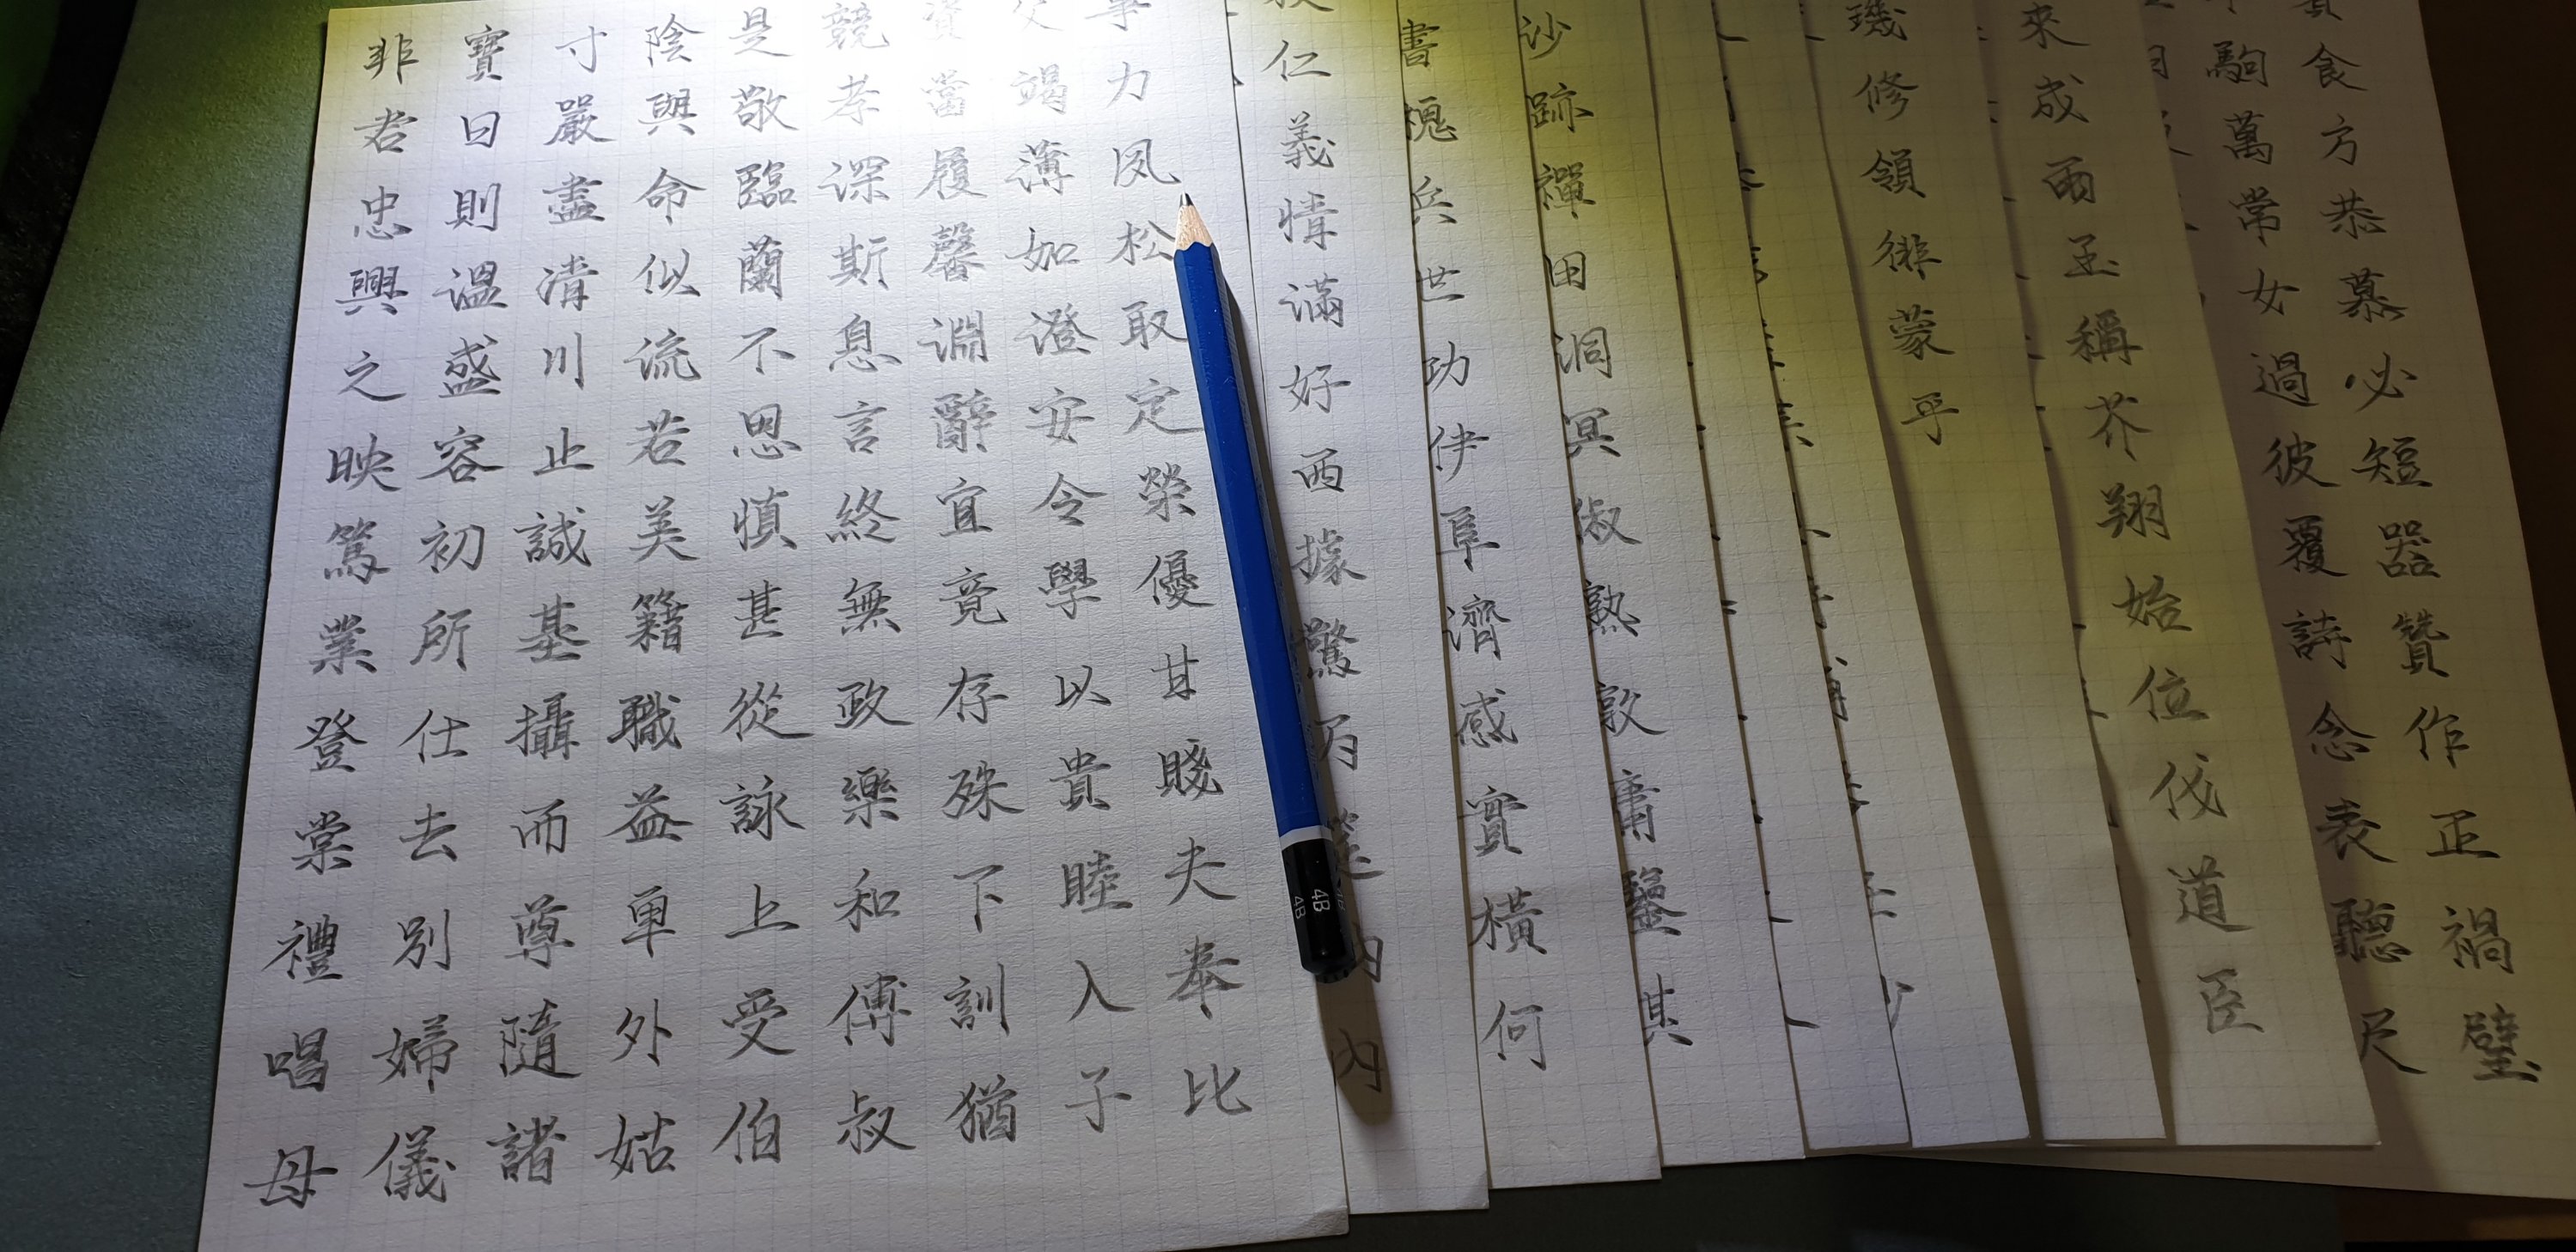 非寶寸陰是競資父事
君曰嚴與敬孝當竭力
忠則盡命臨深履薄夙
興溫清似蘭斯馨如松
之盛川流不息淵澄取
映容止若思言辭安定
篤初誠美慎終宜令榮
業所基籍甚無竟學優
登仕攝職從政存以甘
棠去而益詠樂殊貴賤
禮別尊卑上和下睦夫
唱婦隨外受傅訓入奉
母儀諸姑伯叔猶子比
仁
義
情
滿
好
西
據
驚
內
書
槐
兵
世
功
伊
阜
濟
感
實
橫
何
沙
跡
禪
田
洞
冥
俶
熟
敦
庸
鑒
其
璣
修
領
徘
蒙
乎
來
成
雨
玉
稱
芥
翔
始
位
伐
道
臣
駒食
萬方
常恭
女慕
過必
彼短
覆器
詩贊
念作
表正
聽禍
尺璧
4B